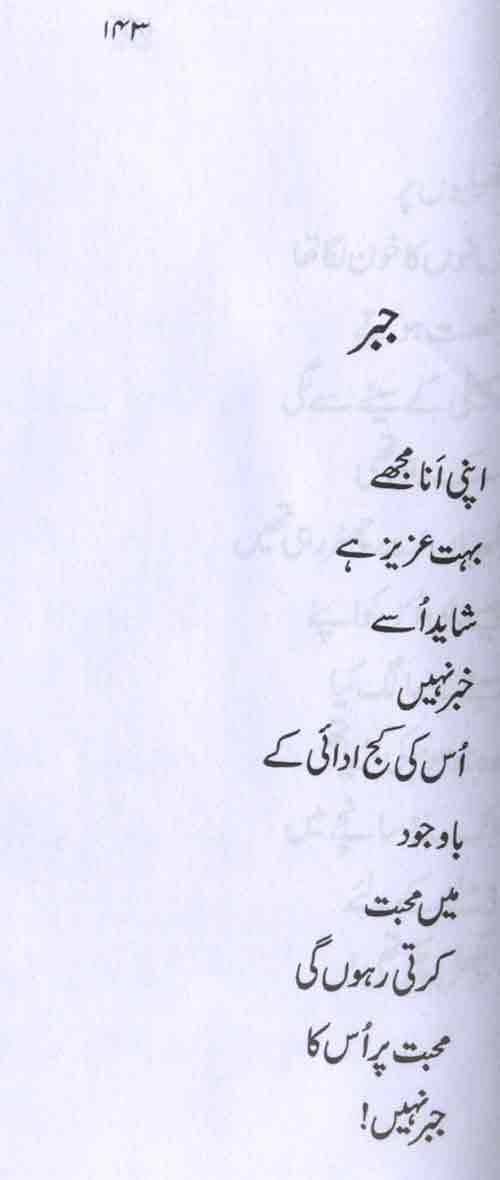 ۱۴۳
جبر
اپنی اَنا مجھے
بہت عزیز ہے
شاید اُسے
خبر نہیں
اُس کی کج ادائی کے
باوجود
میں محبت
کرتی رہوں گی
محبت پر اُس کا
جبر نہیں!